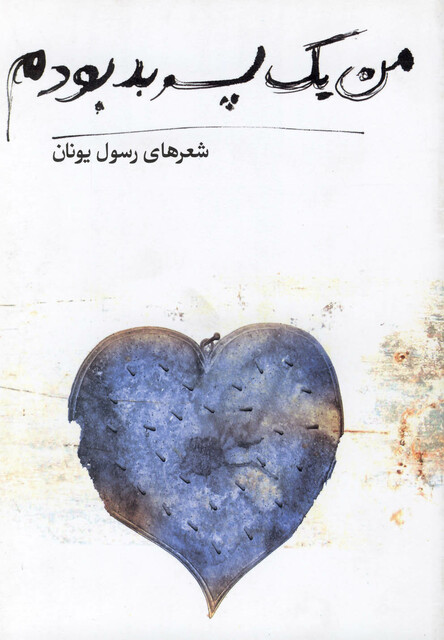 من یک پسر بد بودم
شعرهای رسول یونان